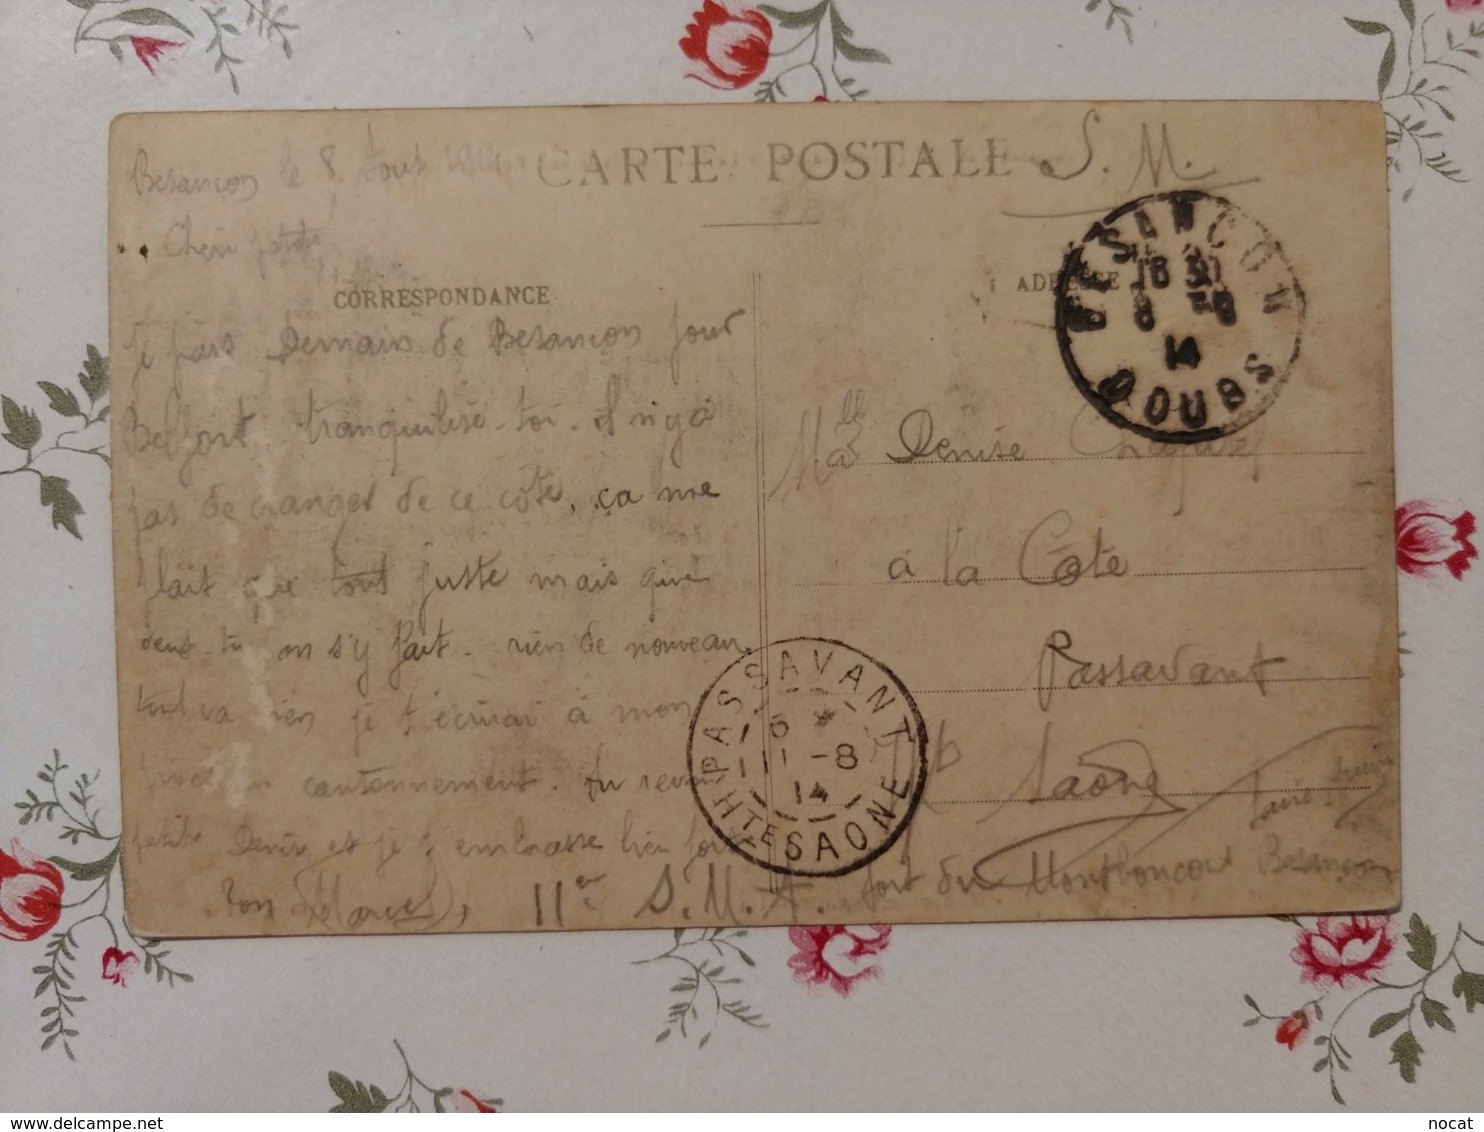 CARTE POSTALE
S. M.
Besançon le 8 Aout 1914
Cheri petite
CORRESPONDANCE
ADRESSE
Je pars Demain de Besançon pour
Belfort. tranquilise-toi. il n'y a
pas de danger de ce côté, ça me
plait que tout juste mais que
veux-tu on s'y fait. rien de nouveau,
tout va bien je t'écrirai à mon
prochain cantonnement. Au revoir
petite Denise et je t'embrasse bien fort
Ton Marcel, 11er S.M.A. fort du Montboucons Besançon
faire suivre
BESANCON
16 30
8 -8
14
DOUBS
Melle Denise
à la Côte
Passavant
Hte Saône
PASSAVANT
6 *
11 -8
14
HTE SAONE
nocat